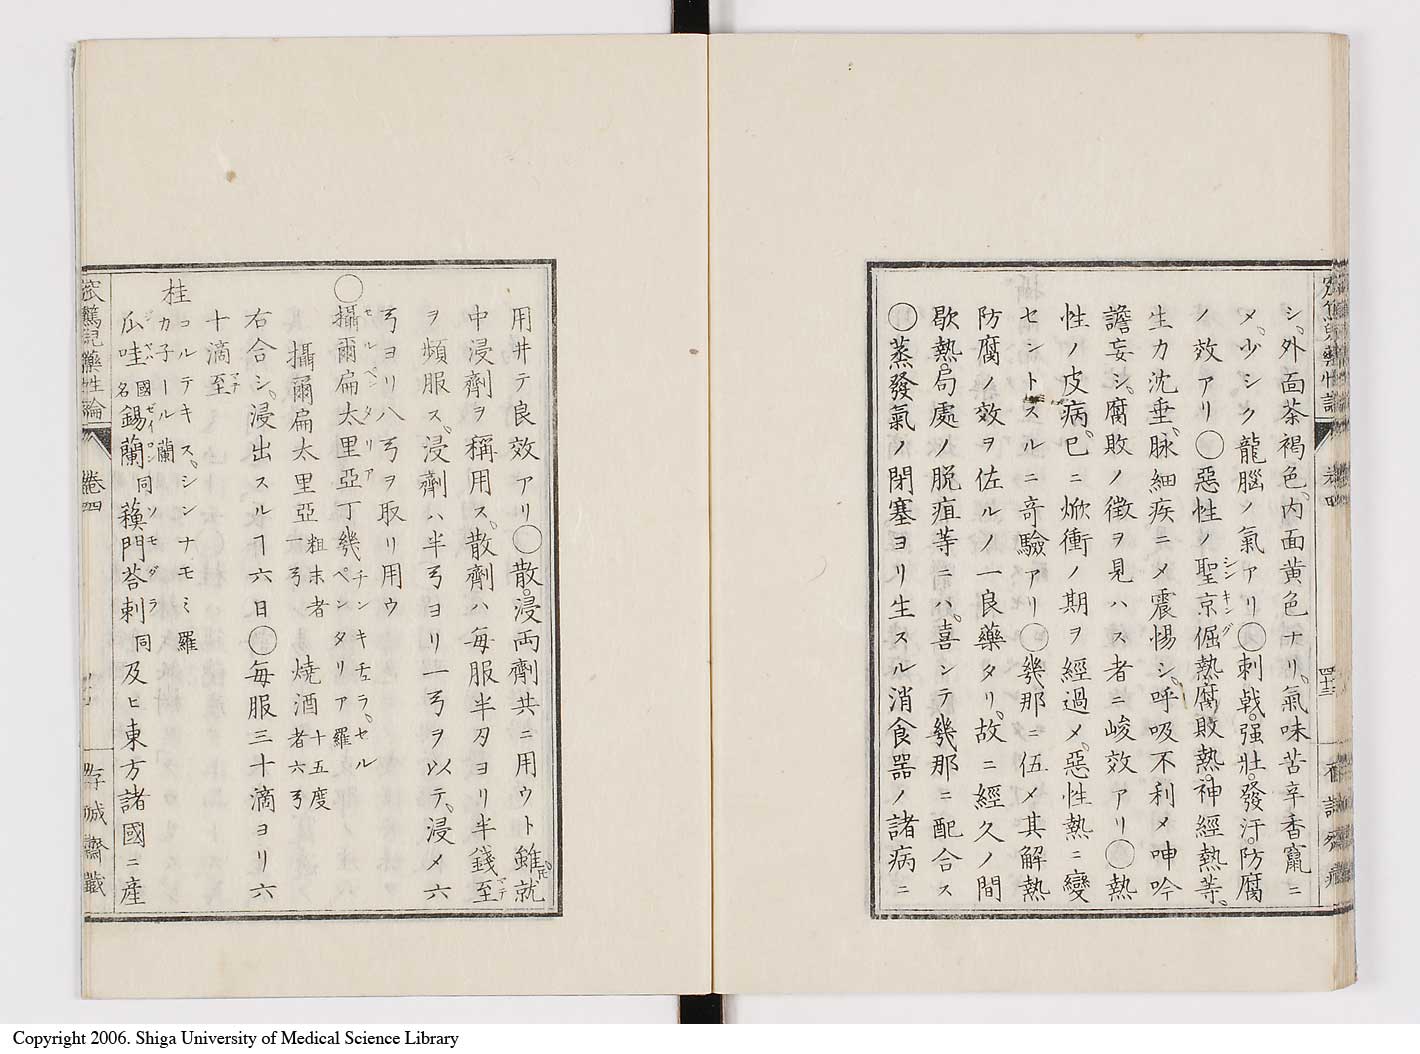 シ、外面茶褐色、内面黄色ナリ、氣味苦辛香竄ニ
メ、少シク龍腦ノ氣アリ〇刺戟。强壯。發汗。防腐
ノ效アリ〇惡性ノ聖京倔熱腐敗熱。神經熱等、
シンキング
生力沈垂、脉細疾ニメ震惕シ、呼吸不利メ呻吟
譫妄シ、腐敗ノ徴ヲ見ハス者ニ峻效アリ〇熱
性ノ皮病、已ニ焮衝ノ期ヲ經過メ、惡性熱ニ變
セントスルニ奇驗アリ〇幾那ニ伍メ其解熱
防腐ノ效ヲ佐ルノ一良藥タリ、故ニ經久ノ間
歇熱。局處ノ脱疽等ニハ、喜ンテ幾那ニ配合ス
〇蒸發氣ノ閉塞ヨリ生スル消食器ノ諸病ニ
用井テ良效アリ〇散。浸両劑共ニ用ウト雖就
中浸劑ヲ稱用ス、散劑ハ毎服半刄ヨリ半錢至
マテ
ヲ頻服ス、浸劑ハ半弓ヨリ一弓ヲ以テ、浸メ六
弓ヨリ八弓ヲ取リ用ウ
〇攝爾扁太里亞丁幾 チンキチュラ、セル ペンタリア 羅
セルペンタリア
攝爾扁太里亞 粗末者 一弓 燒酒 十五度者 六弓
右合シ、浸出スルヿ六日〇毎服三十滴ヨリ六
十滴至
マテ
桂 コルテキス、シンナモミ 羅
カ子ール 蘭
瓜哇 國名 錫蘭 同 蘓門荅剌 同 及ヒ東方諸國ニ産
ゼイロン
ソモダラ
卷四